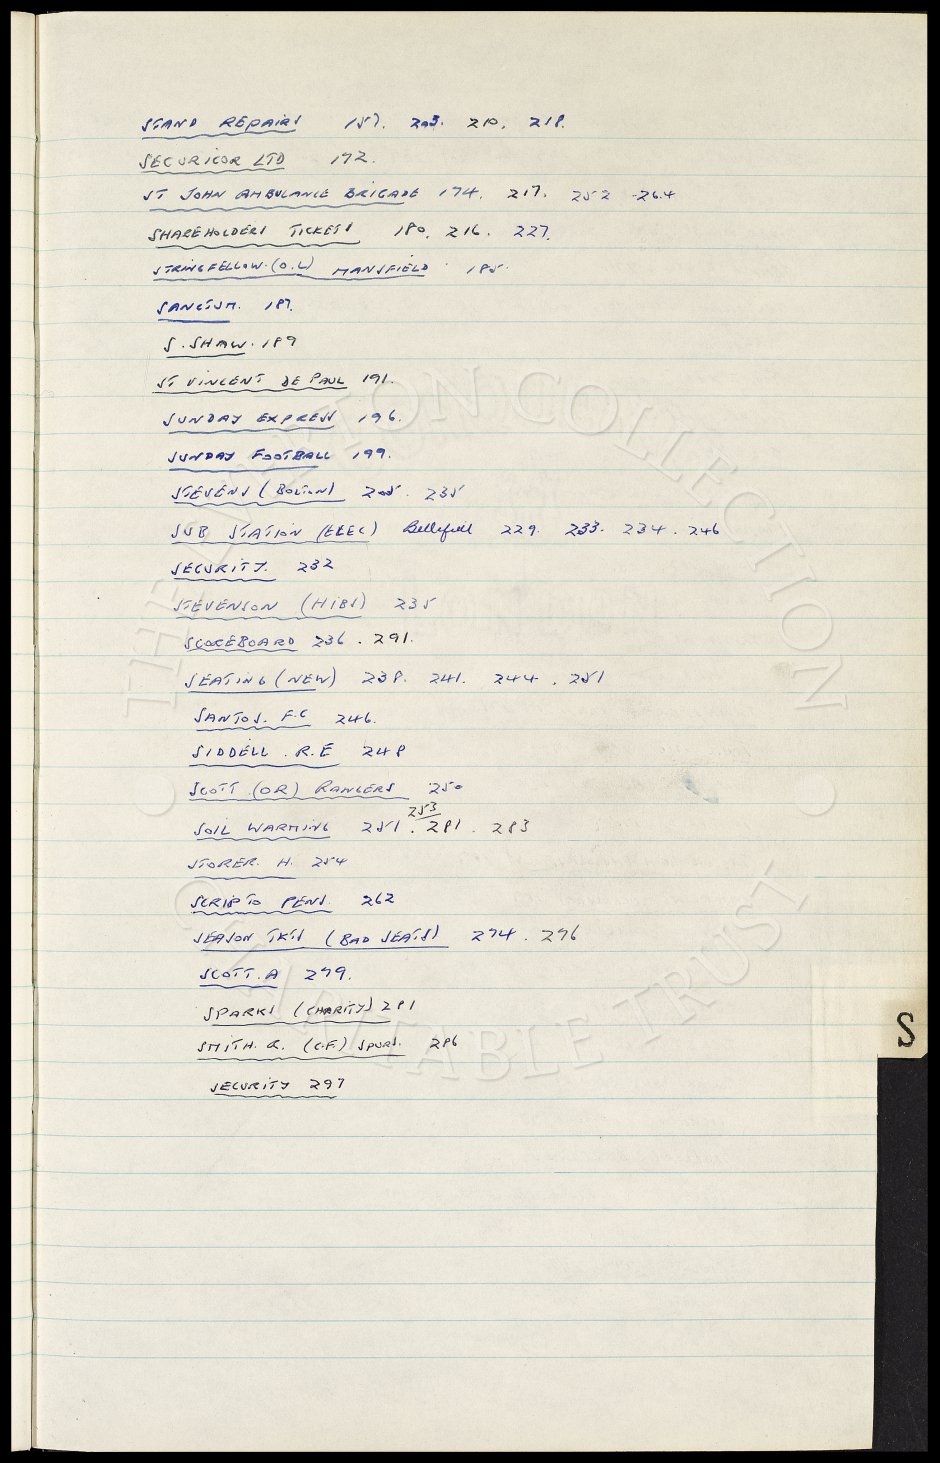 STAND REPAIRS 157. 203. 210. 218.
SECURICOR LTD 172.
ST JOHN AMBULANCE BRIGADE 174. 217. 252 264
SHAREHOLDERS TICKETS 180. 216. 227.
STRINGFELLOW. (O.L) MANSFIELD 185.
SANCTUM. 187.
S. SHAW. 189
ST VINCENT DE PAUL 191.
SUNDAY EXPRESS 196.
SUNDAY FOOTBALL 199.
STEVENS (BOLTON) 205. 235
SUB STATION (ELEC) Bellefield 229. 233. 234. 246
SECURITY. 232
STEVENSON (HIBS) 235
SCOREBOARD 236. 291.
SEATING (NEW) 238. 241. 244. 251
SANTOS. F.C 246.
SIDDELL. R.E 248
SCOTT (OR) RANGERS 250
253
SOIL WARMING 251. 281. 283
STORER. H. 254
SCRIPTO PENS. 262
SEASON TKTS (BAD SEATS) 274. 276
SCOTT. A 279.
SPARKS (CHARITY) 281
SMITH. R. (C.F.) SPURS. 286
SECURITY 297
S
THE EVERTON COLLECTION
CHARITABLE TRUST